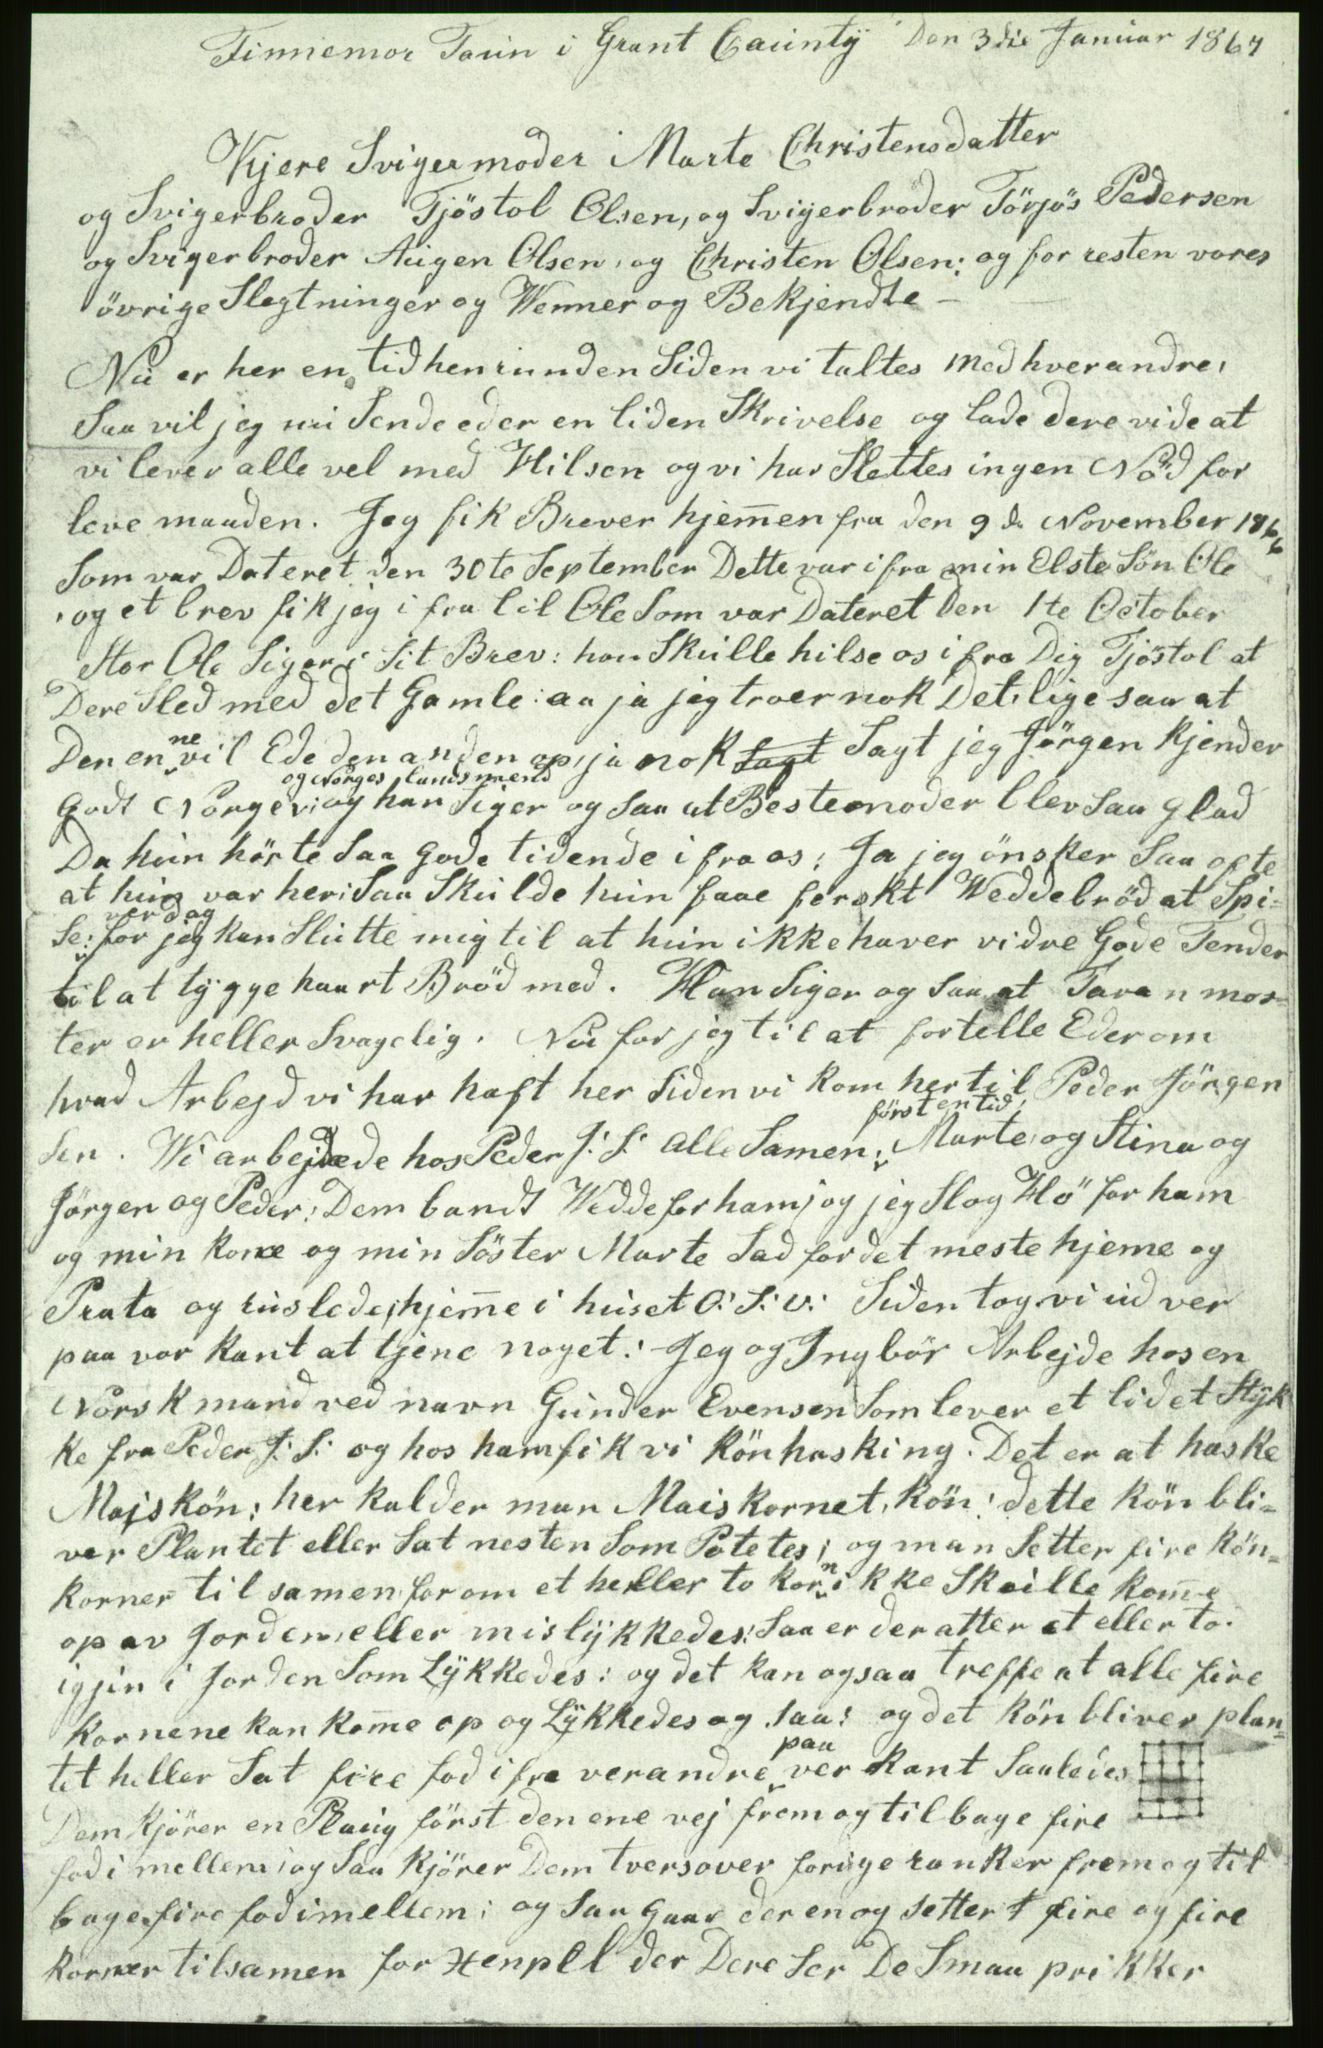 Finnemor Taun i Grant Caunty Den 3die Januar 1867
Kjere Svigermoder i Marte Christensdatter
og Svigerbroder Tjöstol Olsen, og Svigerbroder Törjös Pedersen
og Svigerbroder Augen Olsen, og Christen Olsen; og for resten vores
övrige Slegtninger og Wenner og Bekjendte —
Nu er her en tid henrunden Siden vi taltes med hverandre,
Saa vil jeg nu Sende eder en liden Skrivelse og lade dere vide at
vi lever alle vel med Hilsen og vi har Slettes ingen Nöd for
leve maaden. Jeg fik Brever hjem̄en fra den 9 de November 1866
Som var Dateret den 30te September Dette var ifra min Elste Sön Ole
, og et brev fik jeg i fra lil Ole Som var Dateret den 1te October
Stor Ole Siger i Sit Brev: han Skulle hilse os ifra Dig Tjöstol at
Dere Sled med det Gamle: aa ja jeg troer nok Det, lige saa at
Den enne vil Ede den anden op, ja nok sagt Sagt jeg Jörgen Kjender
og Norges landsmend
godt Norge vi: og han Siger og Saa at Bestemoder blev Saa glad
Da hun hörte Saa gode tidende ifra os; Ja jeg önsker Saa ofte
at hun var her: Saa Skulde hun faae ferskt Weddebröd at Spi-
verdag
Se: for jeg kan Slutte mig til at hun ikke haver vidre Gode Tender
til at tygge haart Bröd med. Han Siger og Saa at Taran mos-
ter er heller Svagelig. Nu for jeg til at fortelle Eder om
hvad Arbejd vi har haft her Siden vi kom her til Peder Jörgen
först en tid;
Sen. Wi arbejdede hos Peder J: S: alle Samen; Marte, og Stina og
Jörgen og Peder; Dem bandt Wedde for ham; og jeg Slog Hö for ham
og min kone og min Söster Marte Sad for det meste hjeme og
Prata og ruslede, hjem̄e i huset O: S: v: Siden tog vi ud ver
paa vor kant at tjene noget: Jeg og Ingbör Arbejde hos en
Norsk mand ved navn Gunder Evensen Som lever et lidet Styk
ke fra Peder J: S: og hos ham fik vi könhasking. Det er at haske
Majskön; her kalder man Maiskornet, kön; dette kön bli-
ver Plantet eller Sat nesten Som Potetes; og man Setter fire kön-
korner til samen, for om et heller to korn ikke Skulle kom̄e
op av Jorden, eller mislykkedes: Saa er der atter et eller to
igjen i Jorden Som Lykkedes: og det kan ogsaa treffe at alle fire
kornene kan kom̄e op og Lykkedes og Saa: og det kön bliver plan-
paa
tet heller Sat fire fod ifra verandre ver kant Saaledes
Dem kjörer en Plaug först den ene vej frem og tilbage fire
fod i mellem; og Saa kjörer Dem tversover forige ranker frem og til
bage fire fod imellem; og Saa gaar der en og setter fire og fire
korner tilsamen for Hempel der Dere Ser De Smaa prikker